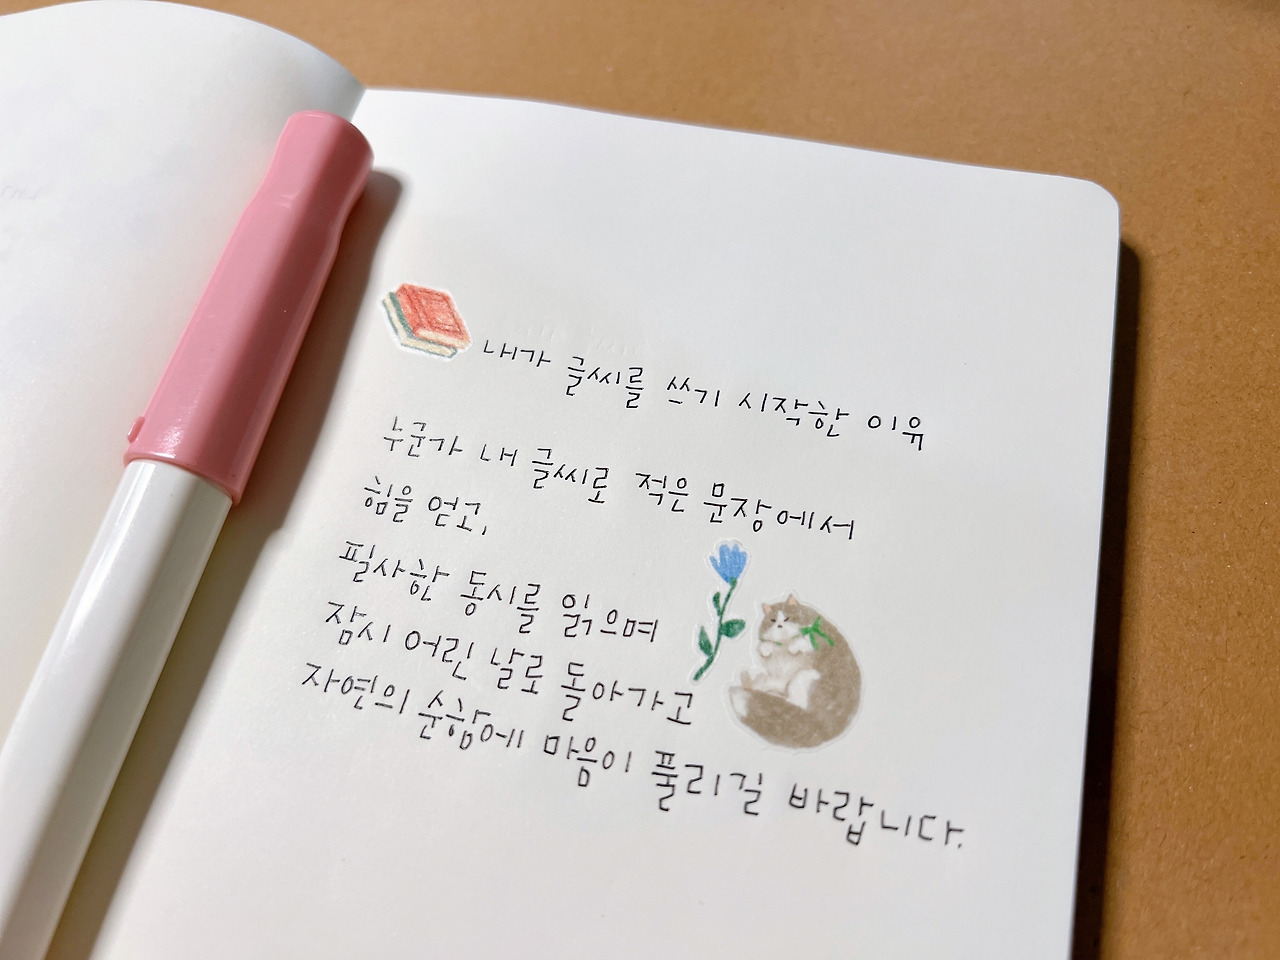 내가 글씨를 쓰기 시작한 이유
누군가 내 글씨로 적은 문장에서
힘을 얻고,
필사한 동시를 읽으며
잠시 어린 날로 돌아가고
자연의 순함에 마음이 풀리길 바랍니다.